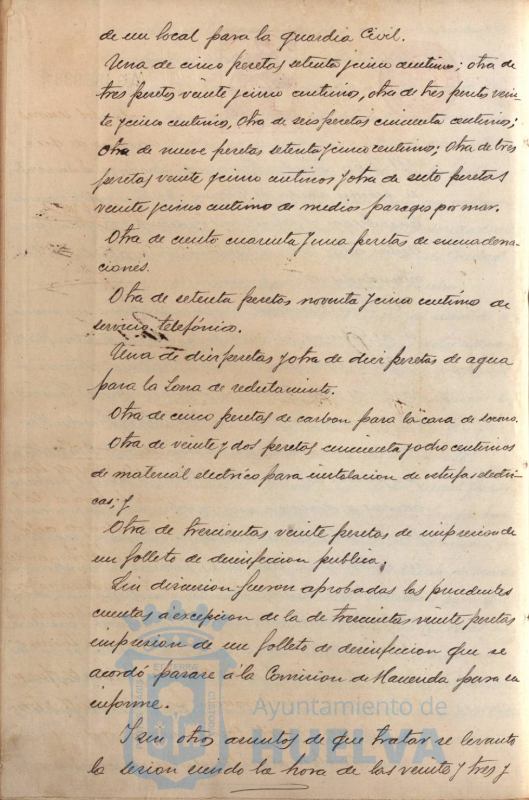 de un local para la guardia Civil.
Una de cinco pesetas setenta y cinco centimos; otra de
tres pesetas veinte y cinco centimos, otra de tres pesetas vein-
te y cinco centimos, otra de seis pesetas cincuenta centimos;
otra de nueve pesetas setenta y cinco centimos; otra de tres
pesetas veinte y cinco centimos y otra de siete pesetas
veinte y cinco centimos de medios pasages por mar.
Otra de ciento cuarenta y una pesetas de encuaderna-
ciones.
Otra de setenta pesetas noventa y cinco centimos de
servicio telefónico.
Una de diez pesetas y otra de diez pesetas de agua
para la Zona de reclutamiento.
Otra de cinco pesetas de carbon para la casa de socorro.
Otra de veinte y dos pesetas cincuenta y ocho centimos
de material electrico para instalacion de estufas electri-
cas; y
Otra de trescientas veinte pesetas de impresion de
un folleto de desinfeccion publica.
Sin discusion fueron aprobadas las precedentes
cuentas a excepcion de la de trescientas veinte pesetas
impresion de un folleto de desinfeccion que se
acordó pasara á la Comision de Hacienda para su
informe.
Y sin otros asuntos de que tratar se levantó
la sesion siendo la hora de las veinte y tres y
Ayuntamiento de
HUELVA